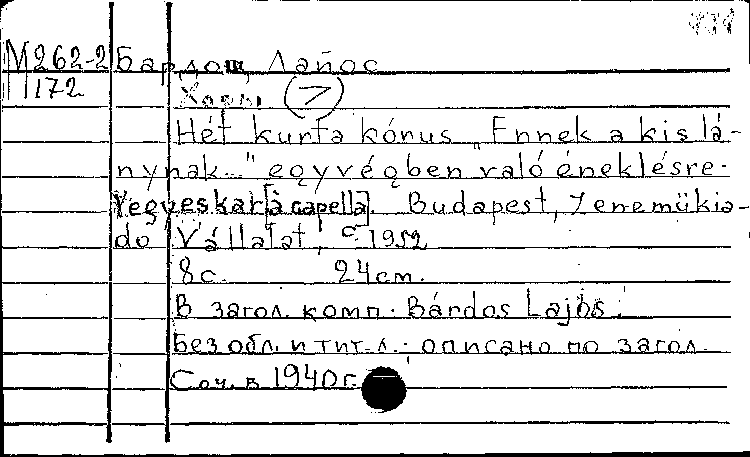 М262-2 Бардош, Лайос
1172 Хоры (7)
Hét kurta kórus „Ennek a kis lá-
nynak..." egyvégben való éneklésre.
Vegyeskar [à capella]. Budapest, Zenemükia-
dó Vállalat, c 1952
8с. 24см.
В загол. комп. Bárdos Lajos.
Без обл. и тит. л.; описано по загол.
Соч. в 1940г.